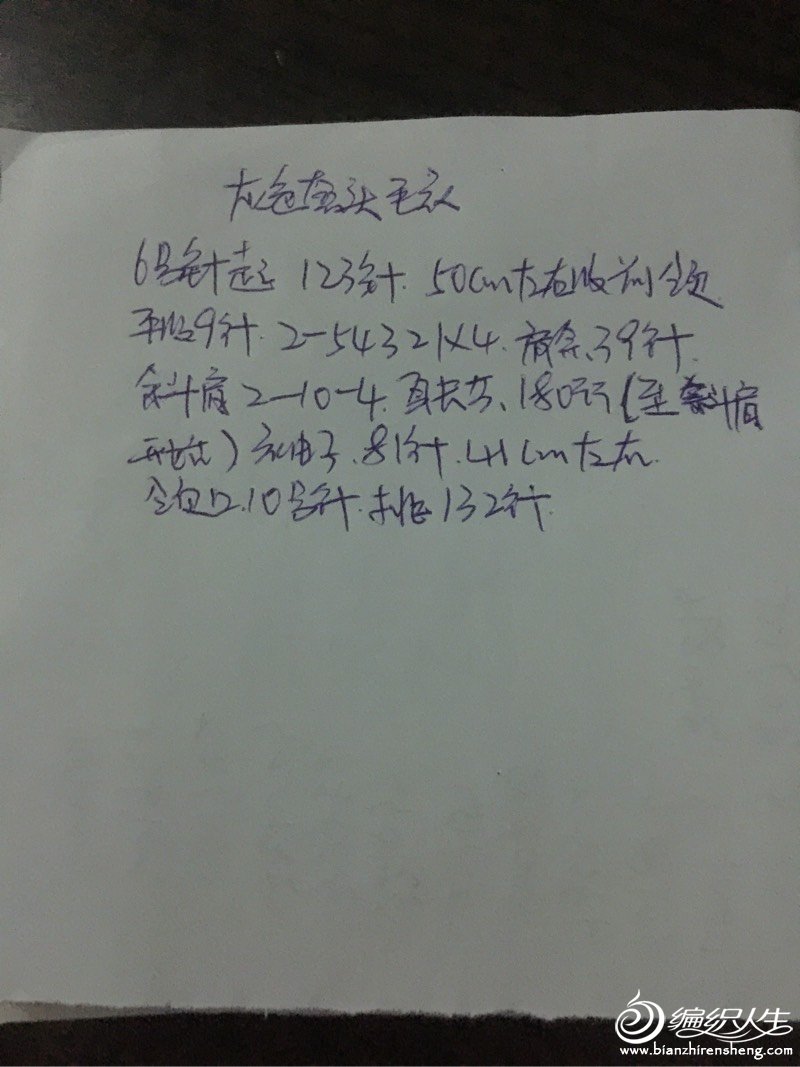 灰色套头毛衣
6号针起 123针. 50cm左右收前领
平收9针. 2-54321X4. 肩余39针.
斜肩2-10-4. 直长共180行(至斜肩
开始) 袖子.81针.41cm左右.
领口.10号针.挑132针.
编织人生
www.bianzhirensheng.com